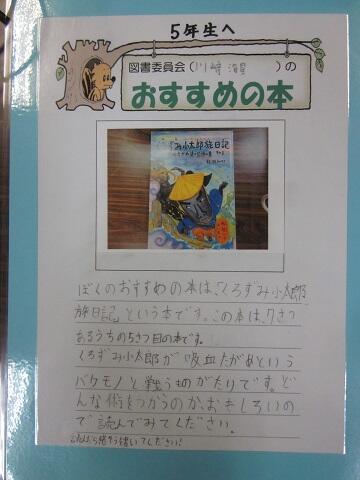 5年生へ
図書委員会(川﨑 )の
おすすめの本
ずみ小太郎旅日記
ぼくのおすすめの本は、「くろずみ小太郎
旅日記」という本です。この本は、7さつ
あるうちの5さつ目の本です。
くろずみ小太郎が吸血たがめという
バケモノと戦うものがたりです。ど
んな術をつかうのか、おもしろいの
で読んでみてください。